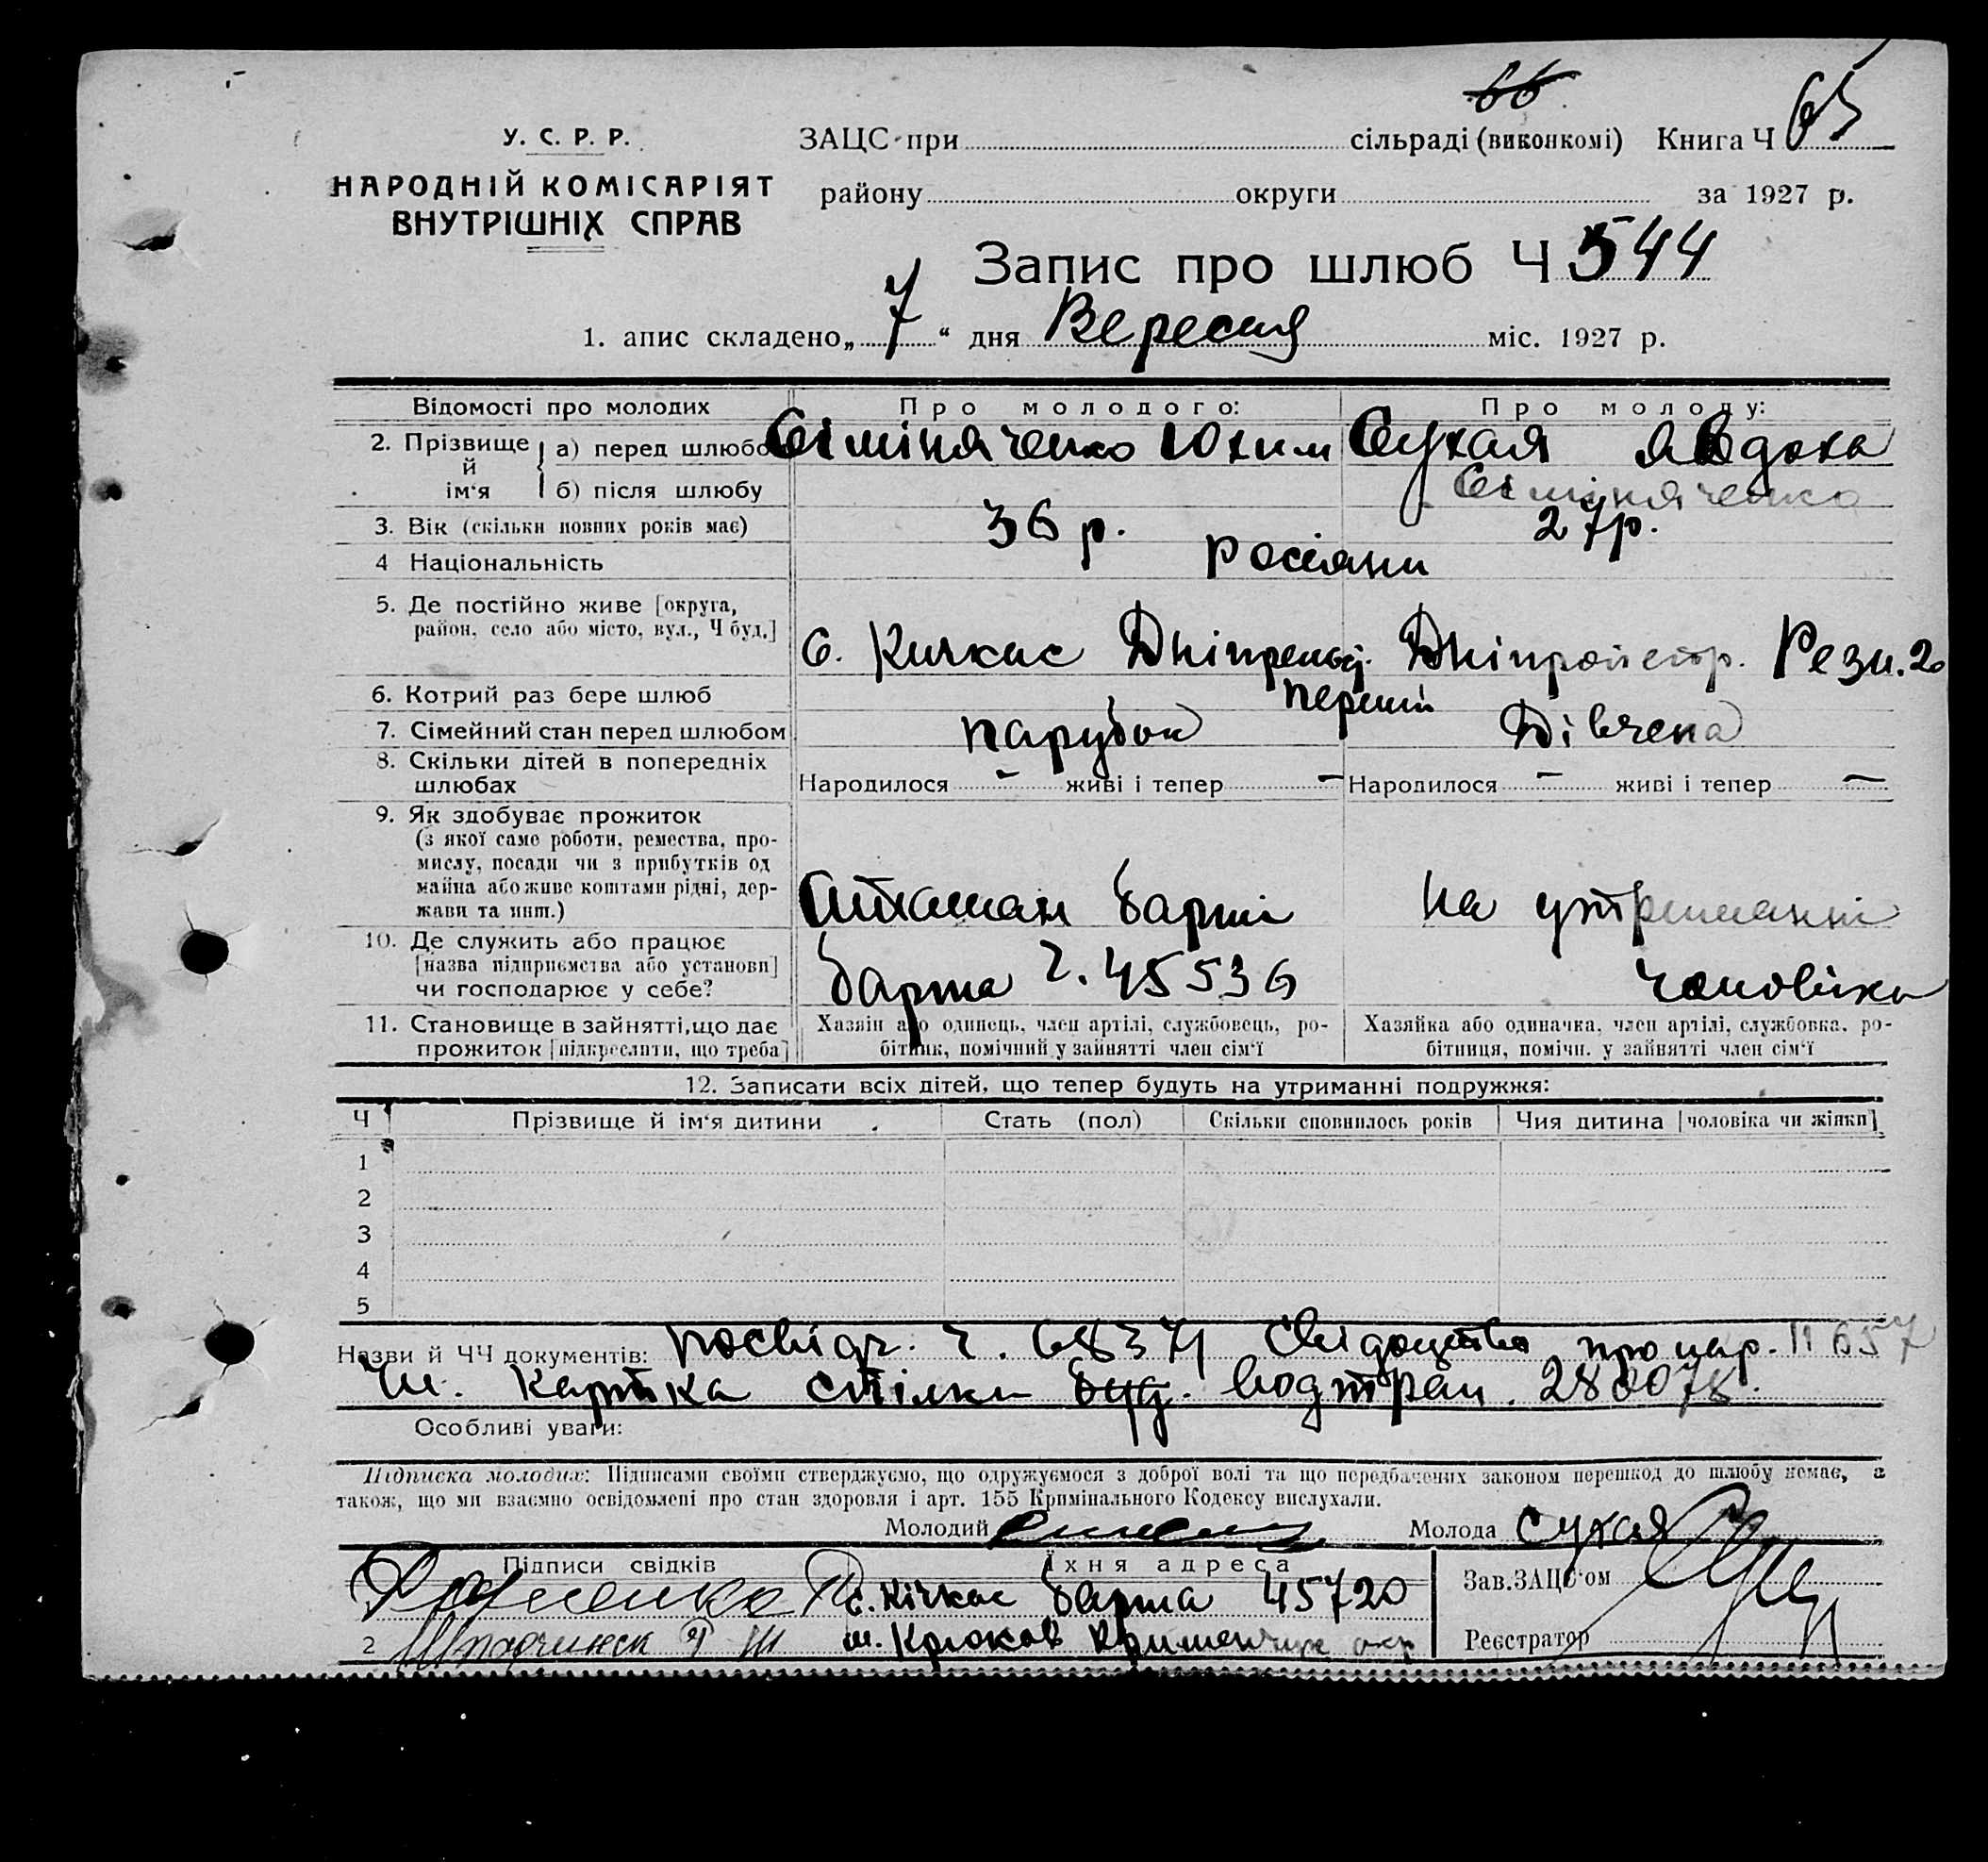 66
У. С. Р. Р. ЗАЦС при сільраді (виконкомі) Книга Ч 65
НАРОДНІЙ КОМІСАРІЯТ району округи за 1927 р.
ВНУТРІШНІХ СПРАВ
Запис про шлюб Ч 544
1. апис складено „ 7 “ дня Вересня міс. 1927 р.
Відомості про молодих Про молодого: Про молоду:
2. Прізвище й ім‘я а) перед шлюбо Юхим Сухая Явдоха
б) після шлюбу
3. Вік (скільки повних років має) 36 р. 27 р.
4 Національність росіяни
5. Де постійно живе [округа,
район, село або місто, вул., Ч буд.] С. Кичкас
6. Котрий раз бере шлюб перший
7. Сімейний стан перед шлюбом парубок Дівчена
8. Скільки дітей в попередніх
шлюбах Народилося — живі і тепер — Народилося — живі і тепер —
9. Як здобуває прожиток
(з якої саме роботи, ремества, про-
мислу, посади чи з прибутків од
майна або живе коштами рідні, дер-
жави та инш.) Атаман баржі на утриманні
10. Де служить або працює
[назва підприємства або установи] баржа ч. 45536 чоловіка
чи господарює у себе?
11. Становище в зайнятті, що дає Хазяїн або одинець, член артілі, службовець, ро- Хазяйка або одиначка, член артілі, службовка, ро-
прожиток [підкреслити, що треба] бітник, помічний у зайнятті член сім‘ї бітниця, помічн. у зайнятті член сім‘ї
12. Записати всіх дітей, що тепер будуть на утриманні подружжя:
Ч Прізвище й ім‘я дитини Стать (пол) Скільки сповнилось років Чия дитина [чоловіка чи жінки]
1
2
3
4
5
Назви й ЧЧ документів: посвідч. ч. Свідоцтво про нар. 11657
Чл. Картка спілки буд. водтран. 280078.
Особливі уваги:
Підписка молодих: Підписами своїми стверджуємо, що одружуємося з доброї волі та що передбачених законом перешкод до шлюбу немає, а
також, що ми взаємно освідомлені про стан здоровля і арт. 155 Кримінального Кодексу вислухали.
Молодий Молода Сухая
Підписи свідків Їхня адреса
с. Кічкас баржа 45720 Зав.ЗАЦС‘ом
2 м. Крюков Кременчук окр Реєстратор